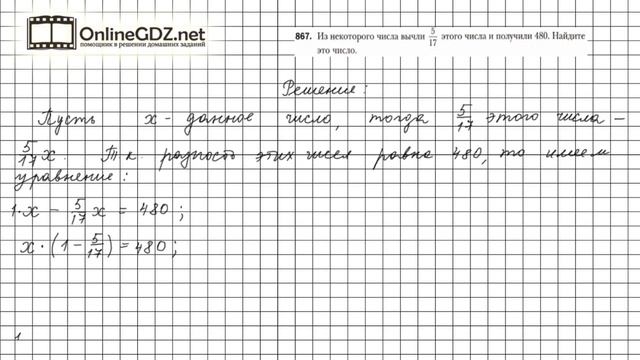 OnlineGDZ.net
помощник в решении домашних заданий
867. Из некоторого числа вычли 5/17 этого числа и получили 480. Найдите
это число.
Решение:
Пусть x - данное число, тогда 5/17 этого числа –
5/17 x. Т. к. разность этих чисел равна 480, то имеем
уравнение:
1·x – 5/17 x = 480;
x·(1 – 5/17) = 480;